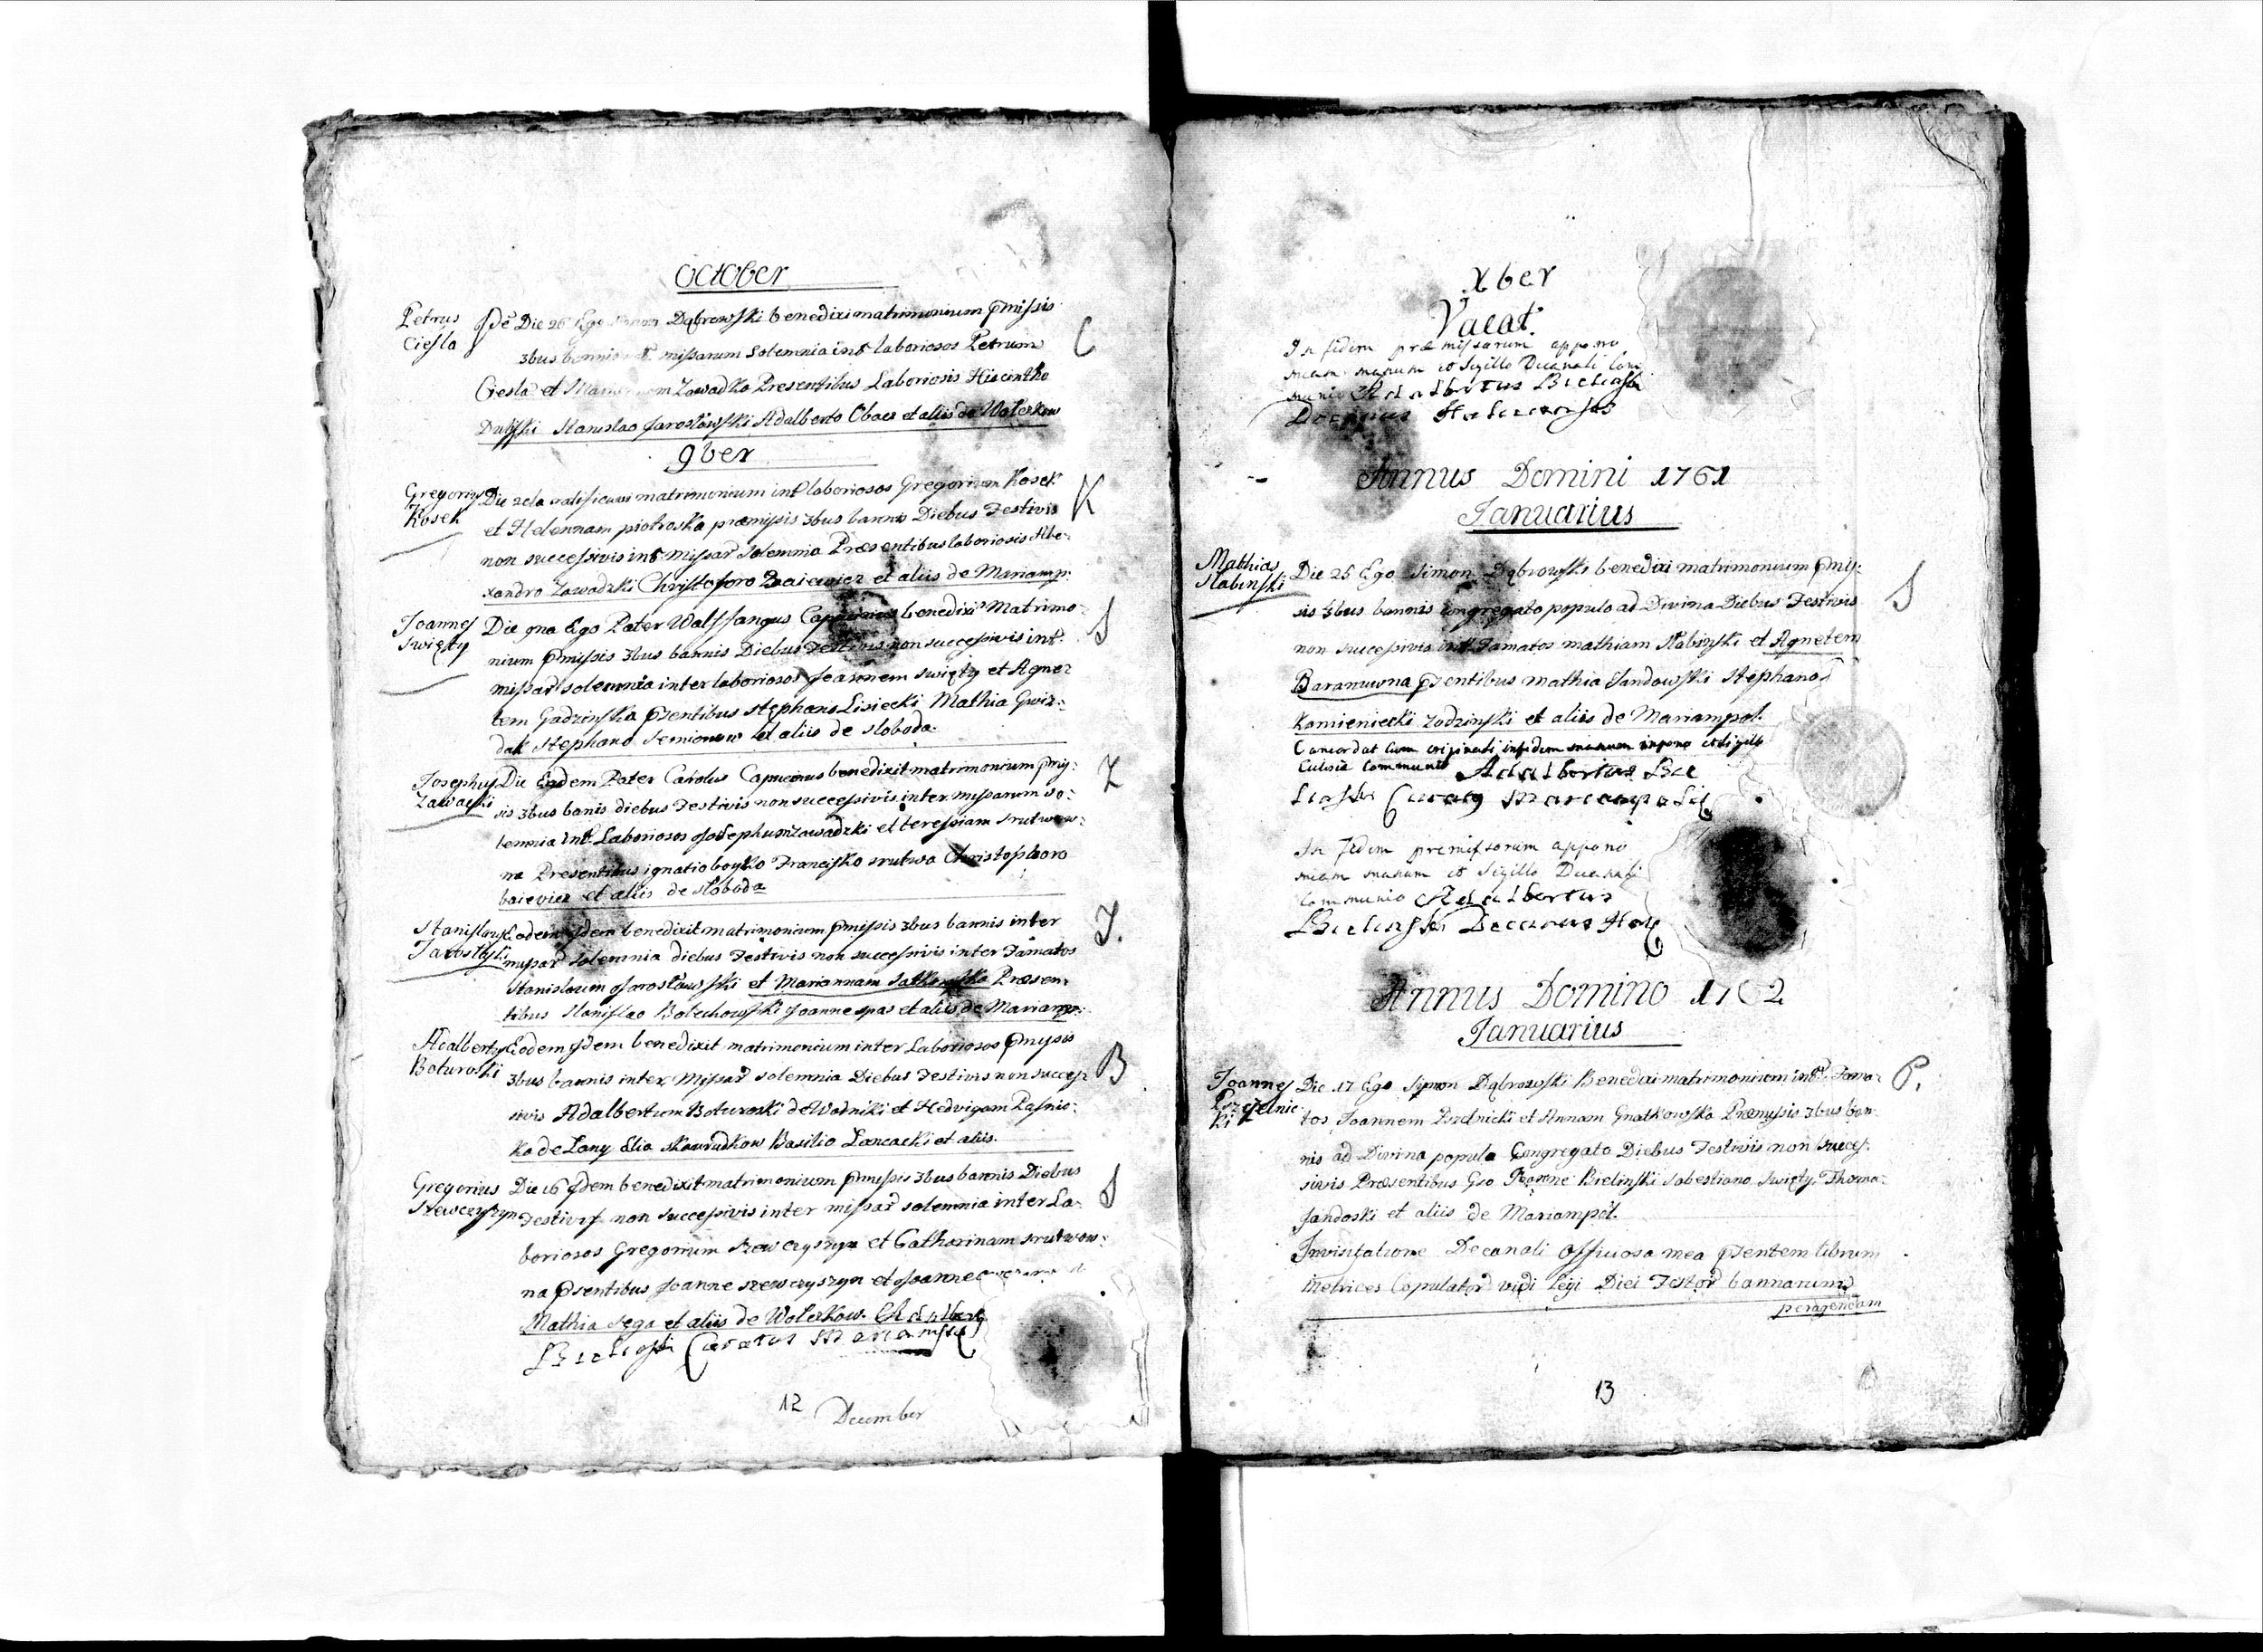 October
Petrus
Cieſla
C
Die 26 Ego Simon Dąbrowſki benedixi matrimonium pmiſsis
3bus bannis missarum solemnia int laboriosos Petrum
Ciesla et Zawadka Presentibus Laboriosis Hiacintho
Dulſki Stanislao Jarosławſki Adalberto Obacz et aliis de Wolczkow
9ber
Gregorius
Kosek
K
Die 2da ratificavi matrimonium int laboriosos Gregorium Kosek
et Helennam piotroska præmiſsis 3bus bannis Diebus Festivis
non succeſsivis int miſsar solemnia Præsentibus laboriosis Ale:
xandro Zawadzki Chriſtoforo Baiewicz et aliis de Mariamp:
Joannes
Swięty
S
Die 9na Ego Pater Walffangus Capucinus benedixi Matrimo:
nium pmiſsis 3bus bannis Diebus Festivis non succeſsivis int:
miſsar solemnia inter laboriosos Joannem Swięty et Agne:
tem Gadzinſka pſentibus Stephano Lisiecki Mathia Gwiz:
dak Stephano Semionow et aliis de sloboda.
Josephus
Zawacki
Z
Die Eadem Pater Carolus Capucinus benedixit matrimonium pmiſ:
sis 3bus banis diebus Festivis non succeſsivis inter miſsarum so:
lemnia int Laboriosos Josephum Zawadzki et tereſsiam srutwow:
na Presentibus ignatio boyko Franciſko srutwa Christophoro
baievicz et aliis de słoboda
Stanislaus
Jarosłaſki
J.
Eodem Jdem benedixit matrimonium pmiſsis 3bus bannis inter
miſsar solemnia diebus Festivis non succeſsivis inter Famatos
Stanislaum Jarosławſki et Mariannam Præsen:
tibus Staniſlao Bolechowſki Joanne spas et aliis de Mariamp:
Adalbertus
Boturoski
B
Eodem Jdem benedixit matrimonium inter Laboriosos pmiſsis
3bus bannis inter Miſsar solemnia Diebus Festivis non succeſ:
sivis Adalbertum Boturoski de Wodniki et Hedvigam Paſnic:
ka de Lany Elia Skowrudkow Basilio Lancacki et aliis.
Gregorius
Szewczyſzyn
S
Die 16 Jdem benedixit matrimonium pmiſsis 3bus bannis Diebus
Festivis non succeſsivis inter miſsar solemnia inter La:
boriosos Gregorium Szewczyszyn et Catharinam srutwow:
na pſentibus Joanne szewczyszyn et Joanne
Mathia Sega et aliis de Wolczkow. Adalbertus
Bielaſki Curatus
12
December
Xber
Vacat.
In fidem præmiſsarum appono
meam manum et Sigillo Decanali Com
munio Adalbertus Bielaſki
Decanus Haliciensis
Annus Domini 1761
Januarius
Mathias
Slabinſki
S
Die 25 Ego Simon Dąbrowſki benedixi matrimonium pmiſ:
sis 3bus bannis congregato populo ad Divina Diebus Festivis
non succeſsivis int Famatos mathiam Slabinſki et Agnetem
Baranuwna pſentibus mathia Jandowſki Stephano
Kamieniecki Zadzinſki et aliis de Mariampol.
Concordat Cum originali infidem manum impono et sigillo
Curiæ Communio Adalbertus Bie
laſki Curatus Mariampolis
In fidem premiſsorum appono
meam manum et Sigillo Decanali
Communio Adalbertus
Bielaſki Decanus Hal
Annus Domino 1762
Januarius
Joannes
Pszczelnic
ki
P.
Die 17 Ego Symon Dąbrowſki Benedixi matrimonium int: Fama:
tos Joannem Pszelnicki et Annam Gnatkowſka Præmiſsis 3bus ban
nis ad Divina populo Congregato Diebus Festivis non succeſ:
sivis Præsentibus Gso Joanne Bielinſki Sabestiano Swięty. Thoma:
Jandoski et aliis de Mariampol.
Invisitatione Decanali officiosa mea pſentem librum
Metrices Copulator vidi legi Diei Festor bannarum
peragendam
13